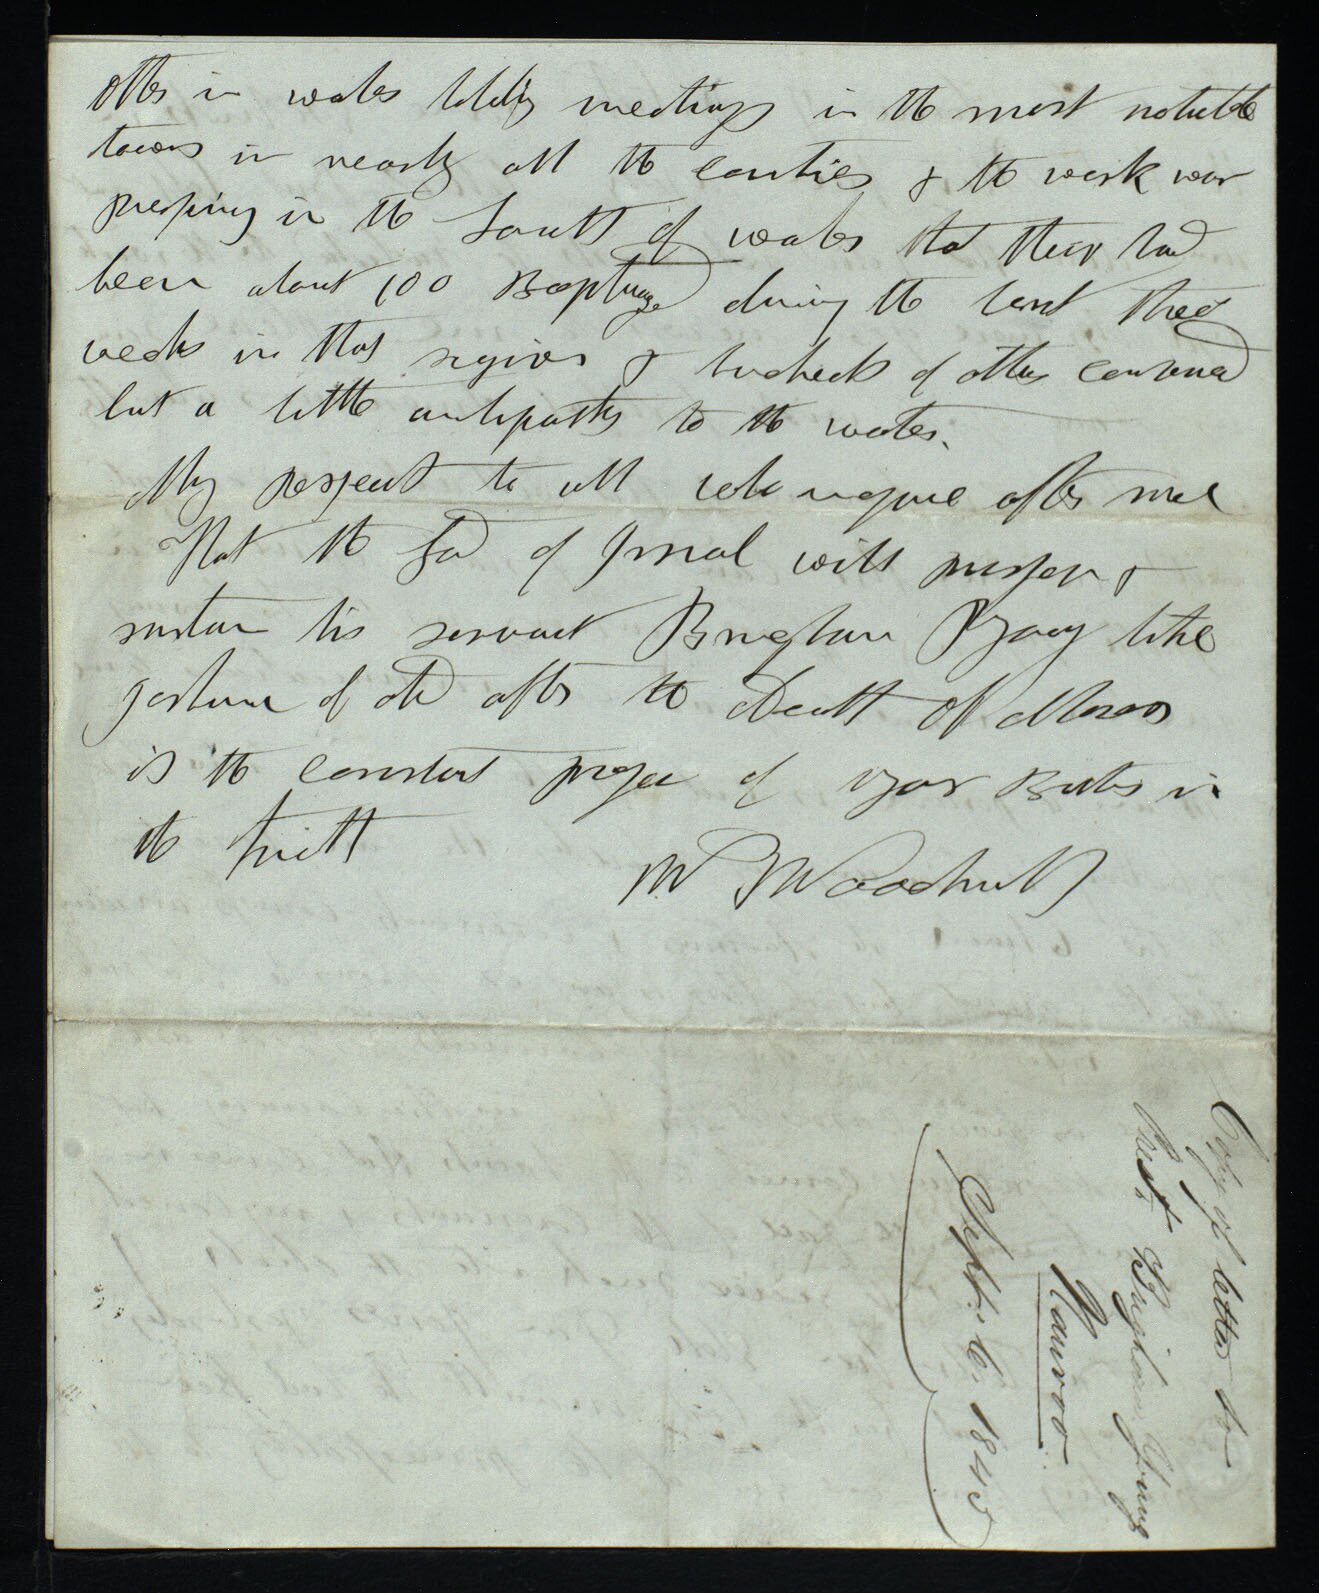 others in wales holding meetings in the most notable
towns in nearly all the counties & the work was
prospering in the South of wales that their had
been about 100 Baptized during the last three
weeks in that region & hundreds of others convinced
but a little antipathy to the water.
My respects to all who inquire after me
That the God of Israel will prosper &
sustain his servant Brigham Young like
Joshua of old after the Death of Moses
is the constant prayer of your Brother in
the truth
W Woodruff
Copy of letter to
Prest Brigham Young
Nauvoo
Septr. 6. 1845